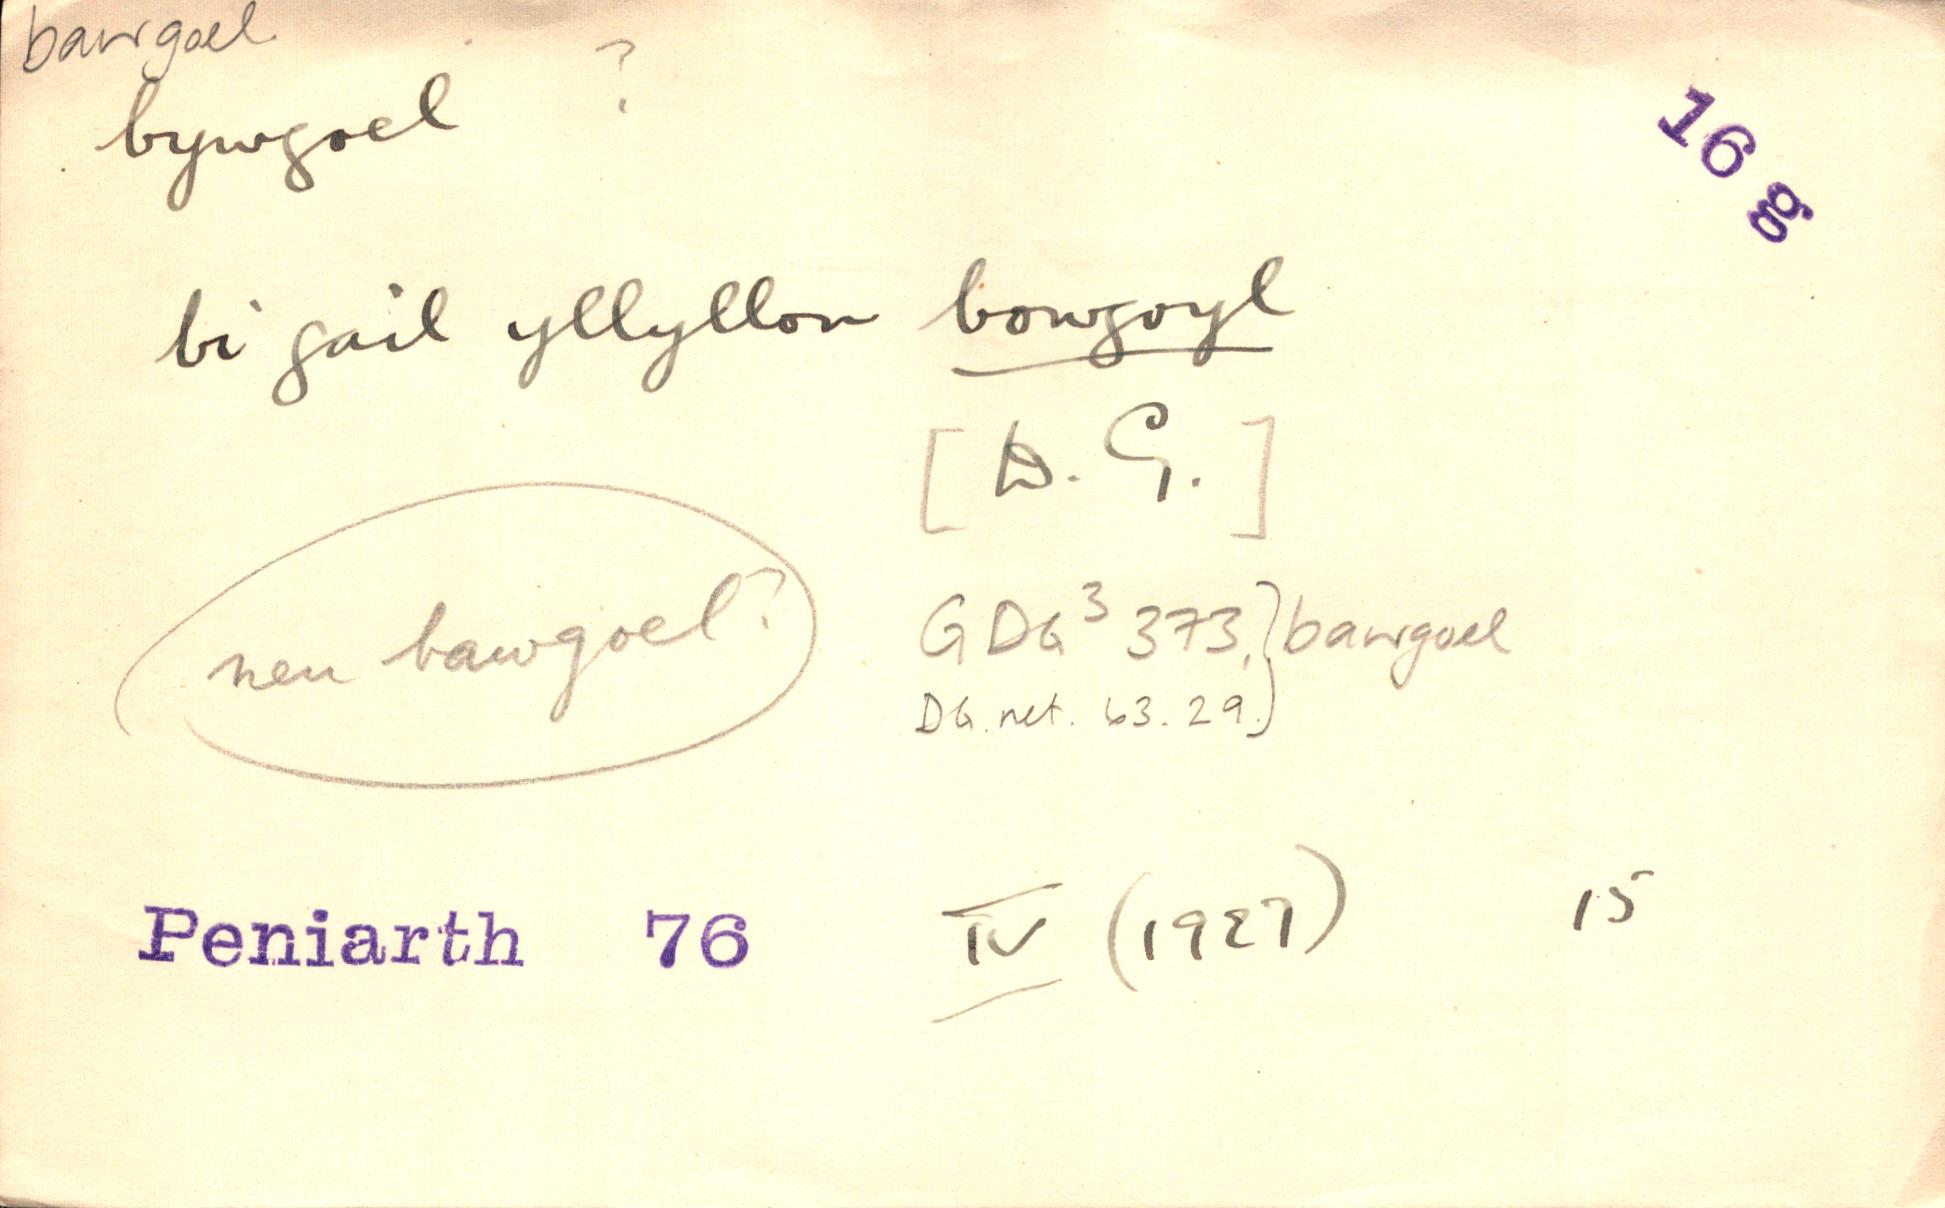 bawgoel
bywgoel ?
16 g
bi gail yllyllon bowgoyl
[D. G.]
neu bawgoel?
GDG³ 373, } bawgoel
DG.net. 63.29. }
Peniarth 76 IV (1927) 15